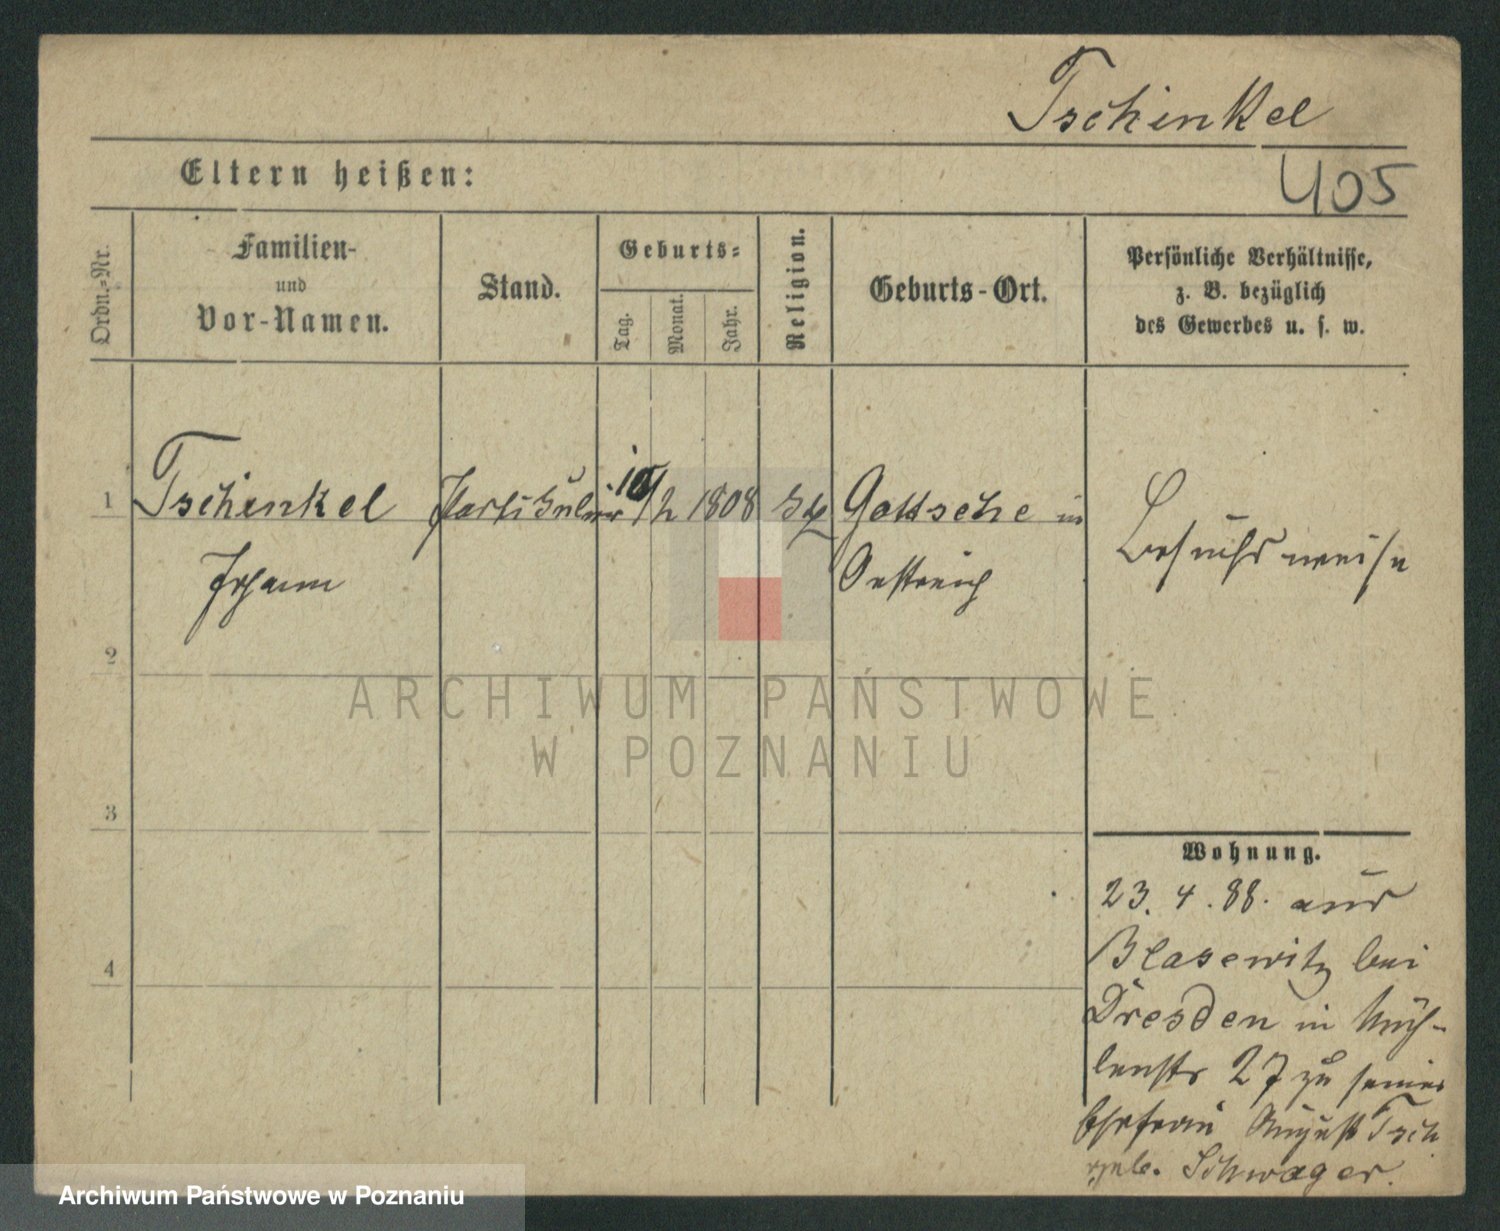 Tschinkel
Eltern heißen:
405
Ordn.-Nr.
Familien-
und
Vor-Namen.
Stand.
Geburts-
Tag.
Monat.
Jahr.
Religion.
Geburts-Ort.
Persönliche Verhältnisse,
z. B. bezüglich
des Gewerbes u. s. w.
1 Tschinkel Partikulier 10/2 1808 Gottsche in
Johann Oestreich
Besuchsweise
2
3
4
ARCHIWUM PAŃSTWOWE
W POZNANIU
Wohnung.
23. 4. 88. aus
Blasewitz bei
Dresden in
27 zu seiner
Ehefrau August Tsch
geb. Schwager.
Archiwum Państwowe w Poznaniu